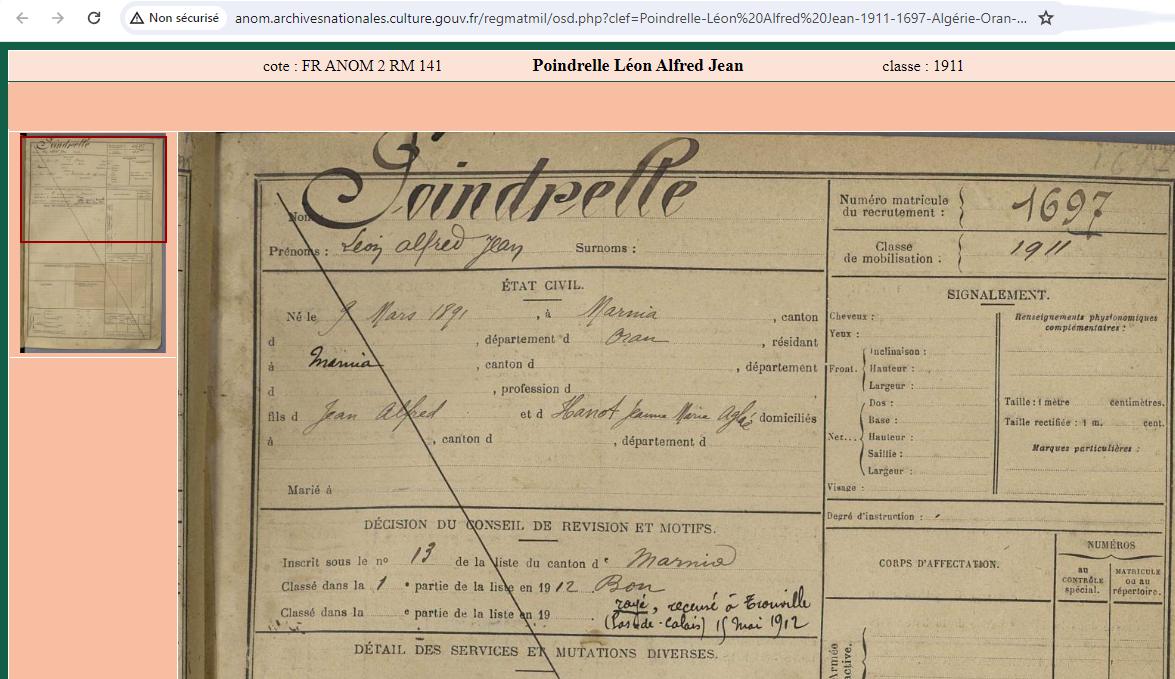 Non sécurisé anom.archivesnationales.culture.gouv.fr/regmatmil/osd.php?clef=Poindrelle-Léon%20Alfred%20Jean-1911-1697-Algérie-Oran-...
cote : FR ANOM 2 RM 141 Poindrelle Léon Alfred Jean classe : 1911
Nom : Poindrelle
Prénoms : Léon alfred Jean Surnoms :
Numéro matricule du recrutement : 1697
Classe de mobilisation : 1911
ÉTAT CIVIL.
Né le 9 Mars 1891, à Marnia, canton
d , département d Oran, résidant
à Marnia, canton d , département
d , profession d ,
fils d Jean Alfred et d Hanot Jeanne Marie Aglaé domiciliés
à , canton d , département d
Marié à
SIGNALEMENT.
Cheveux :
Yeux :
Front.
Inclinaison :
Hauteur :
Largeur :
Nez...
Dos :
Base :
Hauteur :
Saillie :
Largeur :
Visage :
Renseignements physionomiques
complémentaires :
Taille : 1 mètre centimètres.
Taille rectifiée : 1 m. cent.
Marques particulières :
Degré d'instruction :
DÉCISION DU CONSEIL DE REVISION ET MOTIFS.
Inscrit sous le no 13 de la liste du canton de Marnia
Classé dans la 1 e partie de la liste en 1912 Bon
Classé dans la e partie de la liste en 19
rayé, recensé à Trouville
(Pas-de-Calais) 15 mai 1912
DÉTAIL DES SERVICES ET MUTATIONS DIVERSES.
CORPS D'AFFECTATION.
NUMÉROS
au
CONTRÔLE
spécial.
MATRICULE
ou au
répertoire.
Armée
active.